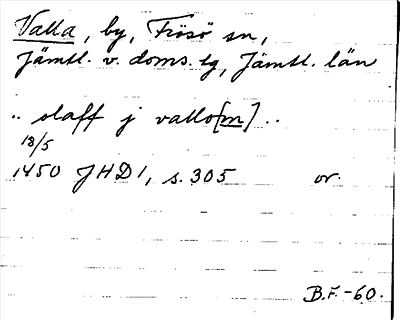 Valla, by, Frösö sn,
Jämtl. v. doms. tg, Jämtl. län
.. staff j vallo[m] ..
18/5
1450 JHD 1, s. 305 or.
B.F. -60.